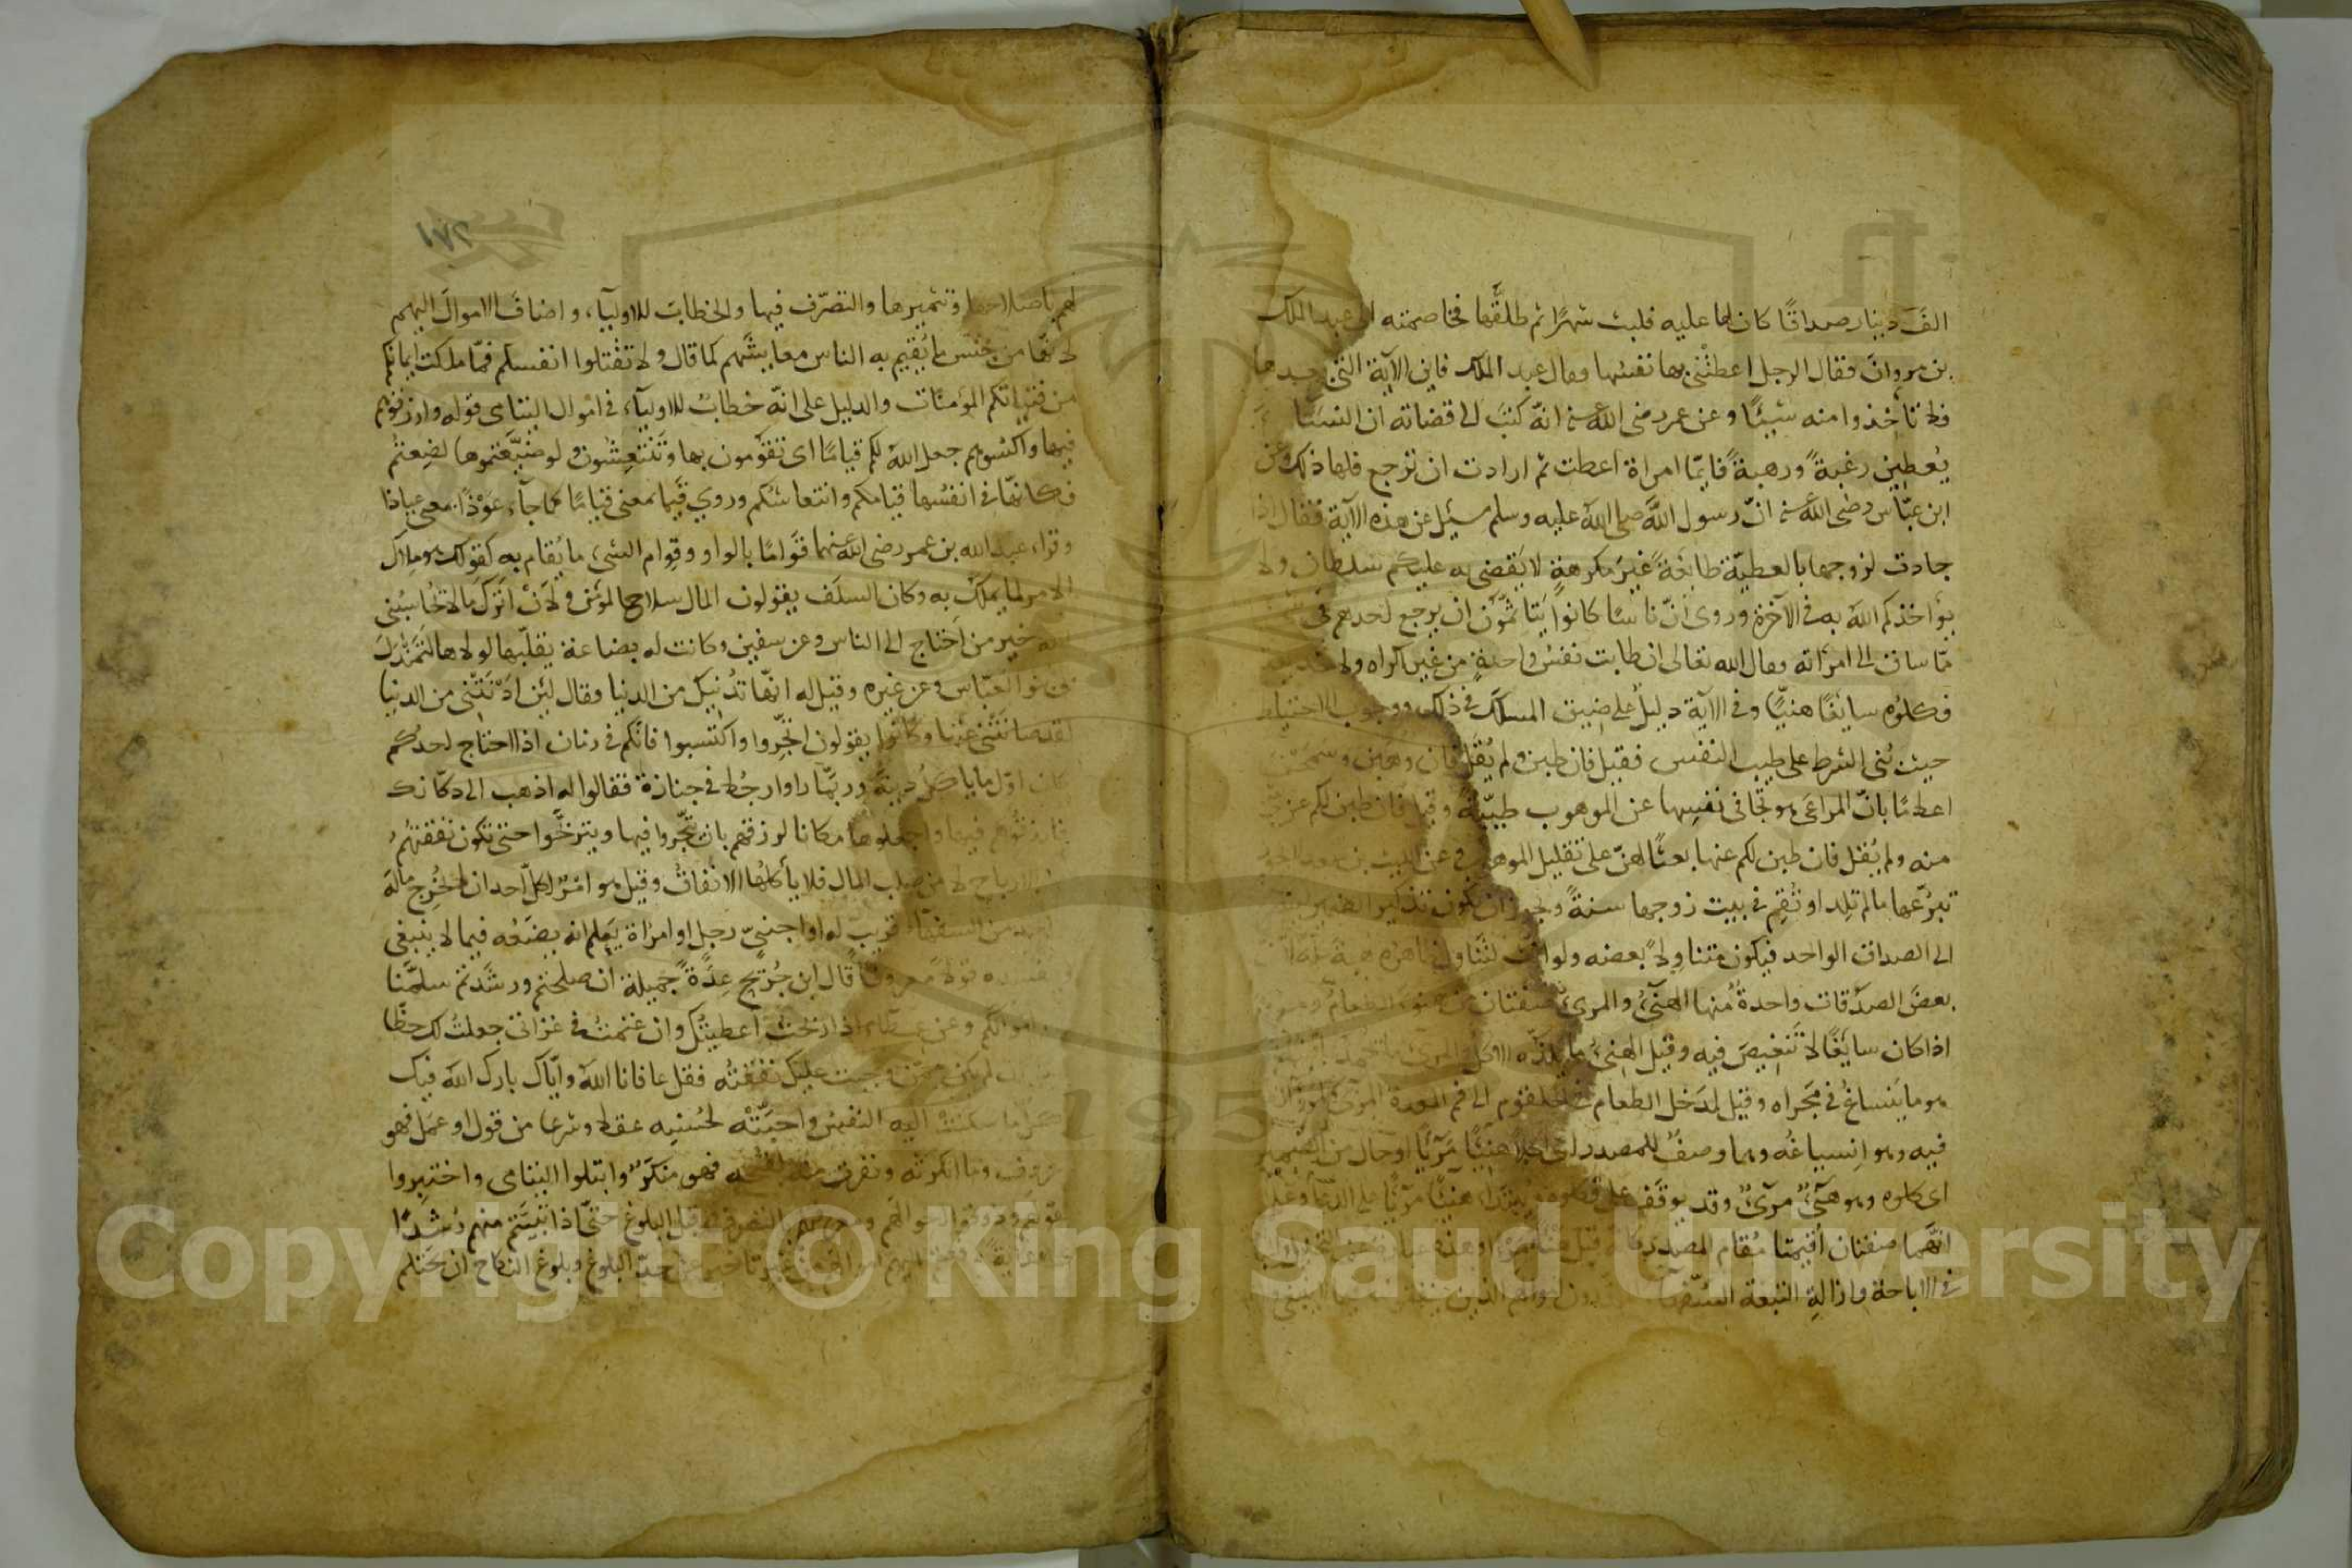 الفَ دينار صداقًا كان لها عليه فلبث شهرًا ثم طلّقها فخاصمته الى عبد الملك
بن مروان فقال الرجل اعطتْني بها نفسُها وقال عبد الملك فاين الآية التي بعدها
فلا تأخذوا منه شيئًا وعن عمر رضى الله عنه انّه كتبَ الى قضاته ان النسَاء
يُعطين رغبةً ورهبةً فايّما امراة اعطت ثم ارادت ان ترجع فلها ذلك وعن
ابن عبّاس رضى الله عنه انّ رسول الله صلى الله عليه وسلم سئِل عن هذه الآية فقال اذا
جادت لزوجها بالعطيّة طائعةً غيرَ مكرهةٍ لا يَقضى به عليكم سلطان ولا
يؤاخذكم الله به في الآخرة وروى انّ ناسًا كانوا يَتأثمّون ان يرجع احدهم فى
ممّا ساق الى امرَاته وقال الله تعالى ان طابت نفسُ واحدةٍ من غير اكراه ولا
فكلوُه سايغًا هنيًّا وفى الآية دليلٌ على ضيق المسلك فى ذلك ووجوب الاحتياط
حيث بُنى الشرط على طيب النفس فقيل فان طبن ولم يُقَل فان وهَبن
اعلامًا بانّ المراعَى هو تجَافى نفسِها عن الموهوب طيبّةً وقيل فان طبن لكم عن
منه ولم يُقَل فان طبن لكم عنها بعثًا لهنّ على تقليل الموهوب وعن الليث بن سعد
تبرّعها ما لم تلِد او تُقِم فى بيت زوجها سنةً ويجوز ان يكون تذكير الضمير
الى الصداق الواحد فيكون متناوِلًا بعضه ولو انّث لتَناول ظاهرُه هبة
بعضَ الصدَقات واحدةٌ منها الهنَىءُ والمرىءُ صفتان من هنؤَ الطعام
اذا كان سايغًا لا تَنغيصَ فيه وقيل الهنىءُ ما يلذّه الاكل والمرىء ما يحمد
هو ما يَنساغُ فى مَجراه وقيل لمَدخل الطعام من الحلقوم الى فم المعدة المرىءُ
فيه وهو انسياغُه وهما وصفٌ للمصدر اى اكلًا هنيئًا مَريًّا او حال من الضمير
اى كلوه وهو هَنىءٌ مرىءٌ وقد يوقَف على فكلوه ويبتدأ هنيًّا مريًّا على الدّعاء وعلى
انّهما صفتان اُقيمتا مُقام المصدر كانّه قيل
فى الاباحة وازالةِ التبعة السّفهاء
لهم باصلاحها وتثميرها والتصرّف فيها والخطابَ للاوليآء واضاف الاموالَ اليهم
لانّها من جنسَ ما يُقيم به الناس معايشَهم كما قال ولا تقتلوا انفسكم فممّا ملكت ايمانكم
من فتياتكم المؤمنات والدليل على انّه خطابٌ للاوليآء فى اموال اليتامى قوله وارزقوهم
فيها واكسُوهم جعل الله لكم قيامًا اى تقوَمون بها وتَنتعِشون ولو ضيّعتموها لضِعتُم
فكانهّا فى انفسُها قيامكم وانتعاشكم وروي قيَما بمعنى قيامًا كما جآء عَوذًا بمعنى عياذا
وقراء عبد الله بن عمر رضى الله عنهما قوَامًا بالواو وقِوام الشىء ما يُقام به كقولك هو ملاك
الامر لما يملك به وكان السلَف يقولون المال سلاح المؤمن ولَان اترُك مالا يحَاسبُنى
الله خير من احَتاج الى الناس وعن سفين وكانت له بضاعة يقلّبها لولاها لتَمَندَل
بى بنو العبّاس وعن غيره وقيل له انهّا تدُنيك من الدنيا وقال لئن ادَنَتْنى من الدنيا
لقد صانَتْنى عنها وكانوا يقولون اتجِّروا واكتسبوا فانكم فى زمان اذا احتاج احدكم
كان اوّل ما ياكل دينَه وربمّا راوا رجُلا فى جنازة فقالوا له اذهب الى دكّانك
وارزقوُهم فيها واجعلوها مكانا لرزقهم بان تتجّروا فيها وتتربحّوا حتى تكون نفقتهُم
من الارباح لا من صلب المال فلا يأكلُها الانفاقُ وقيل هو امْرٌ لكلّ احد ان لا يخُرج مالَه
الى احد من السفهآء قريبٍ له او اجنبىّ رجل او امراة يَعلم انه يضَعُه فيما لا ينبغى
ويفسده قولًا معروفًا قال ابن جُرَيج عِدَةً جميلة ان صلحتم ورشَدتم سلمَّنا
اليكم اموالكم وعن عطاء اذا ربحَتُ اعطيتُك وان غنمتُ فى غزاتى جعلتُ لك حظّا
وقيل ان لم يكن ممّن وجبت عليك نفقَتُه فقل عافانا الله وايّاك بارك الله فيك
وكل ما سكنتْ اليه النفس واحبَّتْه لحُسنِه عقلا وشرعا من قول او عمَل فهو
معروف وما انكرتْه ونفرت منه لقبحه فهو منكَرٌ وابتلوا اليتامى واختبِروا
عقولهم وذوقوا احوالهَم ومعرفتهم بالتصرف قبل البلوغ حتّى اذا تبيّنتم منهم رُشدًا
اى هداية دفعتم اليهم اموالهم من غير تاخير عن حدّ البلوغ وبلوغ النكاح ان يحَتلم
Copyright © King Saud University